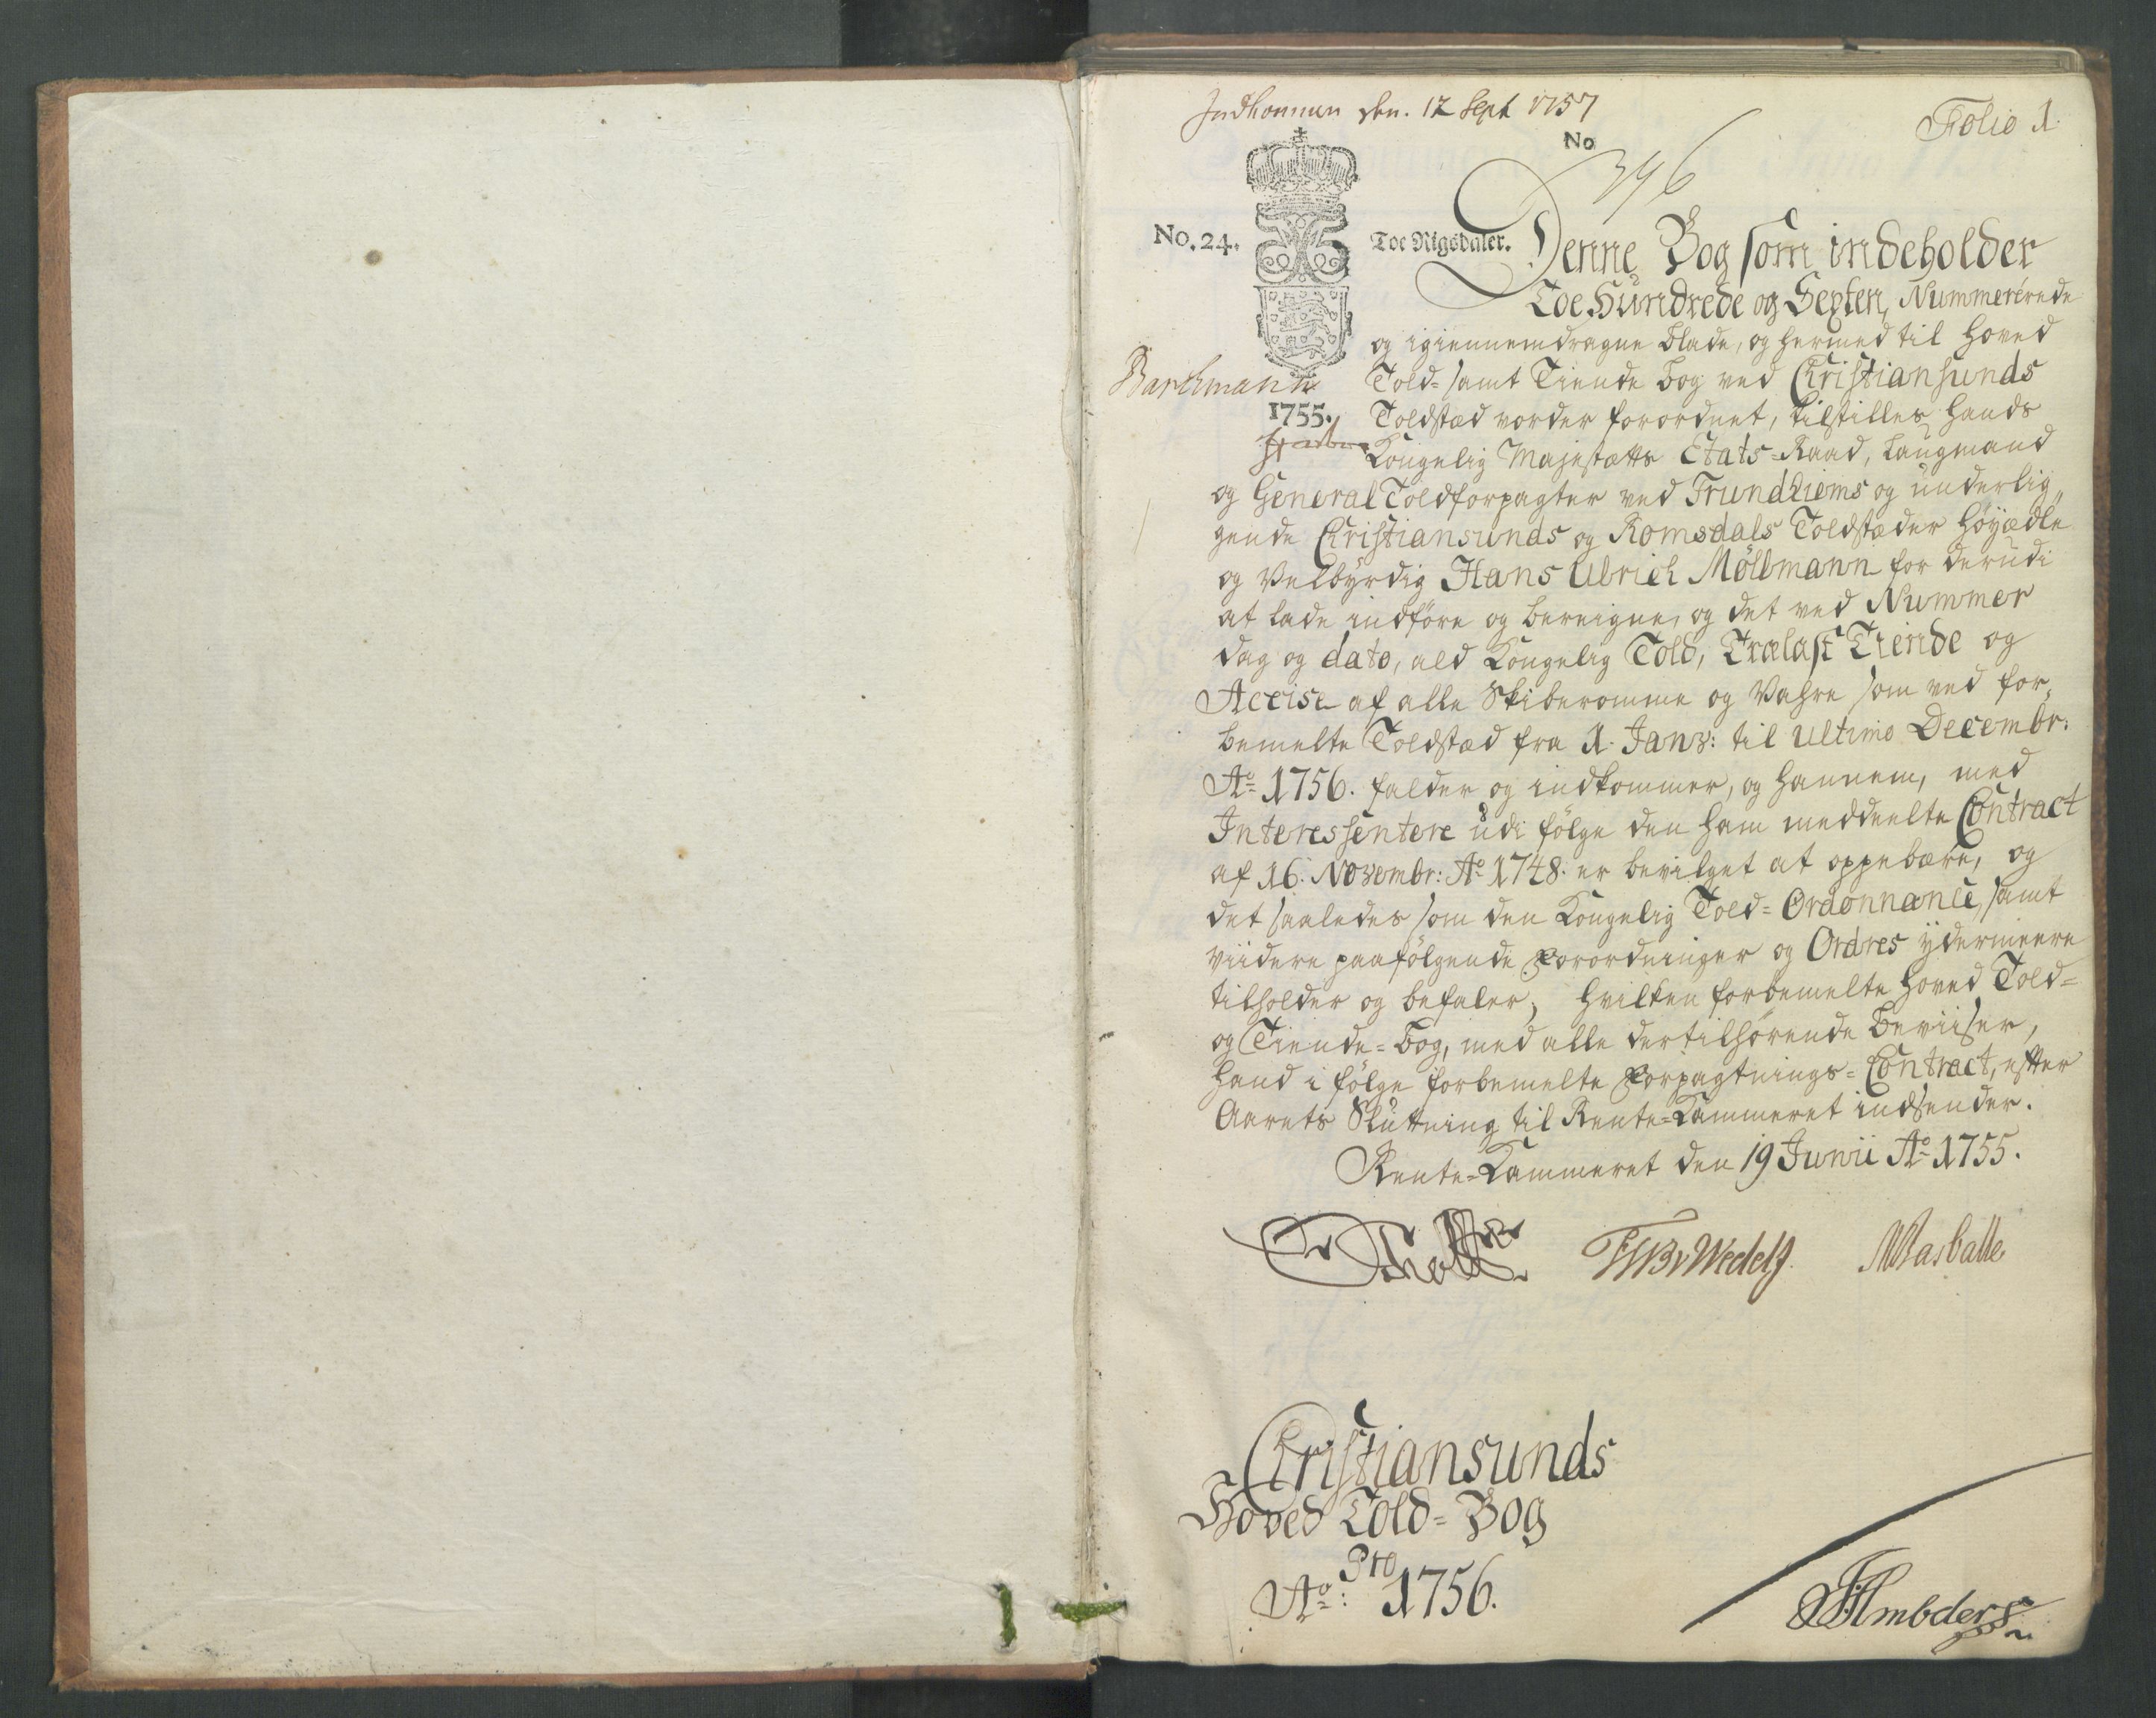 Indkommen den. 12 Sept 1757
Folio 1.
No
396
No. 24.
Toe Rigsdaler.
Denne Bog som indeholder
Toe Hundrede og Sexten, Nummererede
og igiennemdragne blade, og hermed til Hoved
Barchmann
Told- samt Tiende bog ved Christiansunds
1755.
Toldstæd vorder forordnet, tilstilles Hands
Kongelig Majestætts Etats-Raad, Laugmand
og General Toldforpagter ved Trundhiems og underlig„
gende Christiansunds og Romsdals Toldstæder Høyædle
og Velbyrdig Hans Ulrich Möllmann for derudi
at lade indføre og beregne, og det ved Nummer
dag og dato, ald Kongelig Told, Trælast Tiende og
Accise af alle Skiberomme og Vahre som ved for„
bemelte Toldstæd fra 1. Janv: til ultimo Decembr:
Ao 1756. falder og indkommer, og hannem, med
Interessentere udi følge den ham meddeelte Contract
af 16. Novembr: Ao 1748. er bevilget at oppebære, og
det saaledes som den Kongelig Told-Ordonnance, samt
viidere paafølgende Forordninger og Ordres ydermeere
tilholder og befaler; Hvilken forbemelte Hoved Told-
og Tiende-Bog, med alle dertilhørende Beviiser,
Hand i følge forbemelte Forpagtnings-Contract, efter
Aarets Slutning til Rente-Kammeret indsender.
Rente-Kammeret den 19 Junii Ao 1755.
Christiansunds
Hoved Told-Bog
Pro
Ao: 1756.